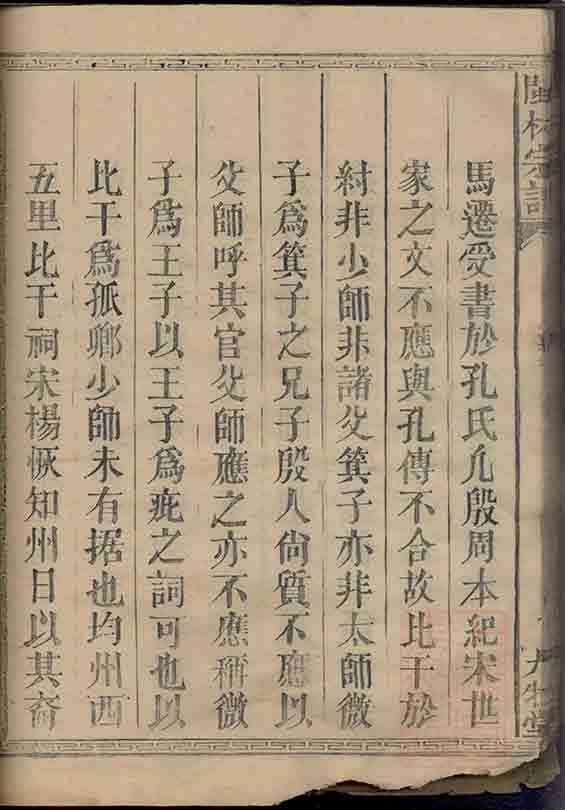 閩林宗譜
九牧堂
馬遷受書於孔氏凢殷周本紀宋世
家之文不應與孔傳不合故比干於
紂非少師非諸父箕子亦非太師微
子爲箕子之兄子殷人尙質不應以
父師呼其官父師應之亦不應稱微
子爲王子以王子爲疵之詞可也以
比干爲孤卿少師未有据也均州西
五里比干祠宋楊恢知州日以其裔